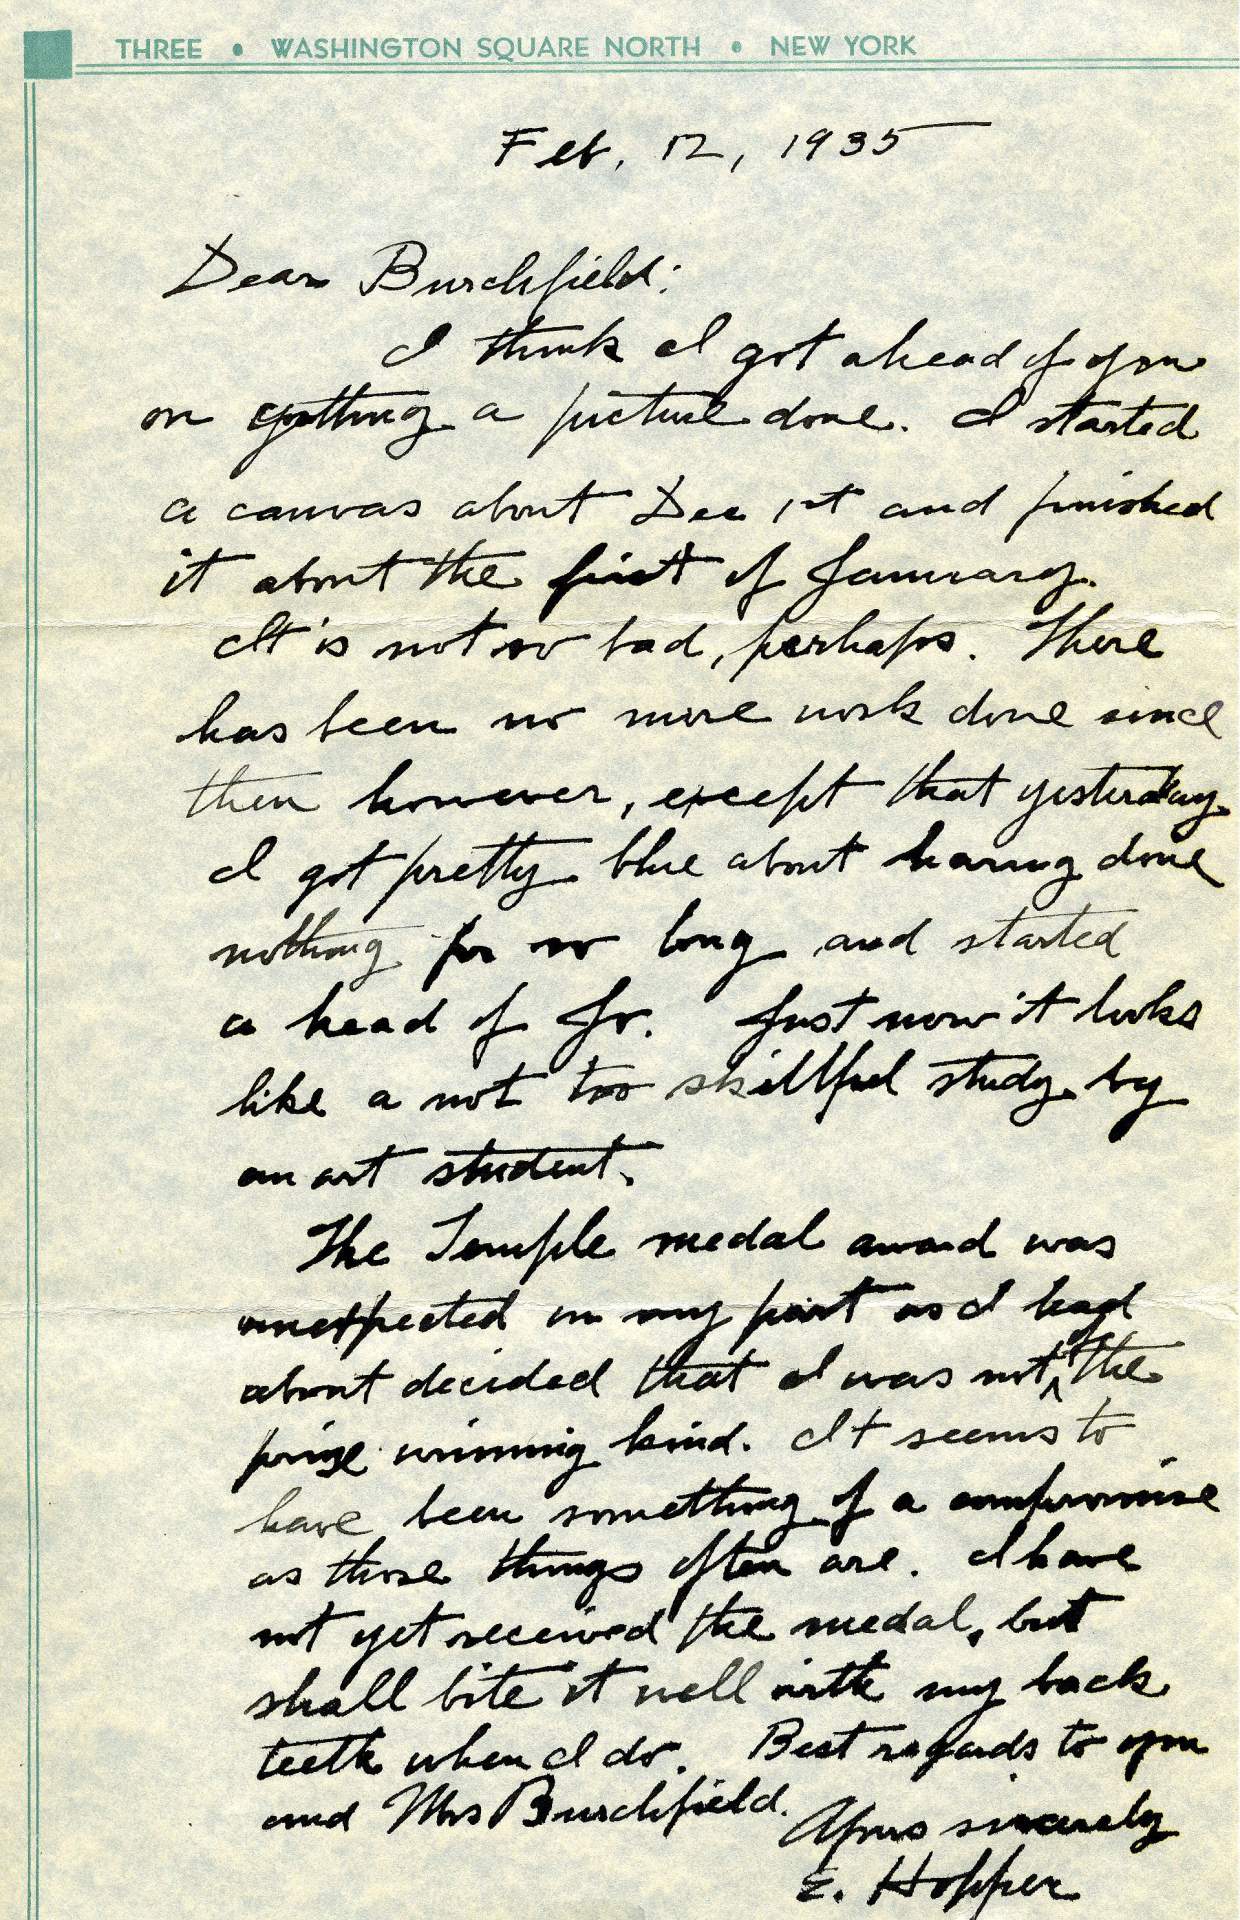 THREE • WASHINGTON SQUARE NORTH • NEW YORK
Feb, 12, 1935
Dear Burchfield:
I think I got ahead of you
on getting a picture done. I started
a canvas about Dec 1st and finished
it about the first of January.
It is not so bad, perhaps. There
has been no more work done since
then however, except that yesterday
I got pretty blue about having done
nothing for so long and started
a head of Jo. Just now it looks
like a not too skillful study by
an art student.
The Temple medal award was
unexpected on my part as I had
about decided that I was not of the
prize winning kind. It seems to
have been something of a compromise
as those things often are. I have
not yet received the medal, but
shall bite it well with my back
teeth when I do. Best regards to you
and Mrs Burchfield.
Yours sincerely
E. Hopper